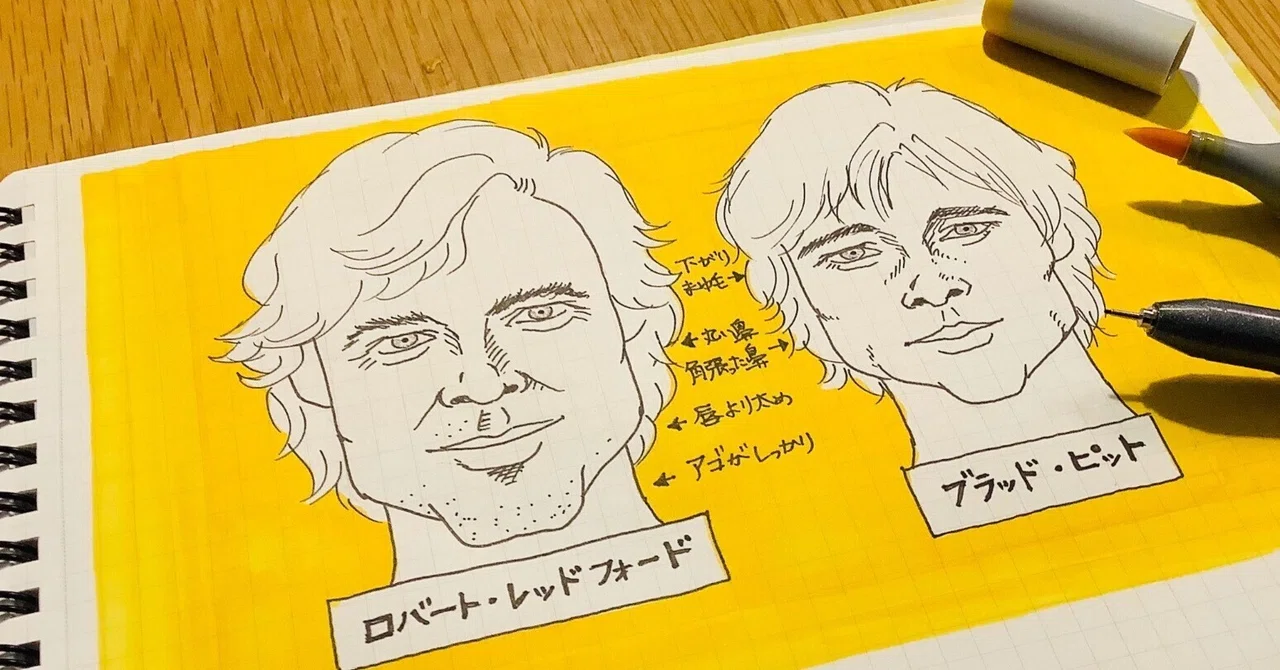 下がり
まゆ毛→
←丸い鼻
角張った鼻→
←唇より太め
←アゴがしっかり
ロバート・レッドフォード
ブラッド・ピット